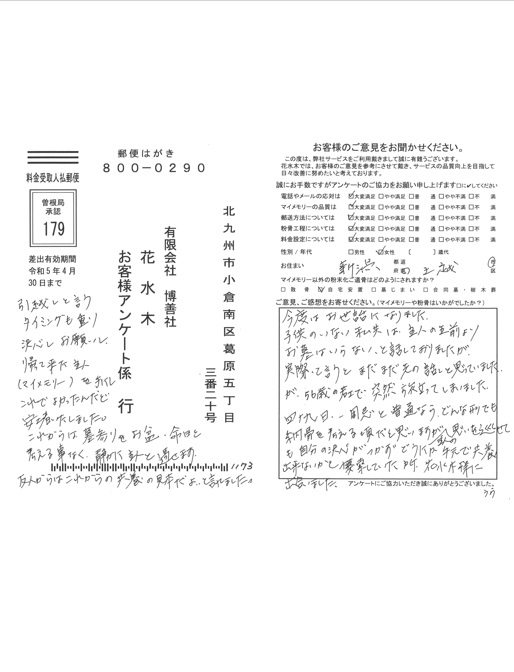 郵便はがき
800-0290
料金受取人払郵便
曽根局
承認
179
差出有効期間
令和5年4月
30日まで
北九州市小倉南区葛原五丁目
三番二十号
有限会社 博善社
花水木
お客様アンケート係 行
引越しと言う
タイミングも重り
決心しお願いし、
帰って来た主人
(マイメモリー)を手にし
これでよかったんだと
安堵いたしました。
これからは墓参りをお盆・命日と
考える事なく、静かに主人と過せます。
友人からはこれからの供養の見本だよ、と言われました。
1173
お客様のご意見をお聞かせください。
この度は、弊社サービスをご利用戴きまして誠に有難うございます。
花水木では、お客様のご意見を参考にさせて戴き、サービスの品質向上を目指して
日々改善に努めたいと考えております。
誠にお手数ですがアンケートのご協力をお願い申し上げます □に✓してください
電話やメールの応対は ☑大変満足 □やや満足 □普 通 □やや不満 □不 満
マイメモリーの品質は ☑大変満足 □やや満足 □普 通 □やや不満 □不 満
郵送方法については ☑大変満足 □やや満足 □普 通 □やや不満 □不 満
粉骨工程については ☑大変満足 □やや満足 □普 通 □やや不満 □不 満
料金設定については ☑大変満足 □やや満足 □普 通 □やや不満 □不 満
性別/年代 □男性 ☑女性 [ ]歳代
お住まい 新潟 都道府県 上越 市区
マイメモリー以外の粉末化ご遺骨はどのようにされますか?
□散骨 ☑自宅安置 □墓じまい □合同墓・樹木葬
ご意見、ご感想をお寄せください。(マイメモリーや粉骨はいかがでしたか?)
今度はお世話になりました。
子供のいない私共は、主人の生前より
お墓はいらない、と話しておりましたが、
実際、と言うとまだまだ先の話しと思っていました
が、56歳の若さで突然亡くなってしまいました。
四十九日、一周忌と普通なら、どんな形でも
納骨を考える頃だと思いますが
も自分の決心がつかず、どうにか 手元で供養
出来ないかと模索していた所、花水木様に
出会いました。
アンケートにご協力いただき誠にありがとうございました。